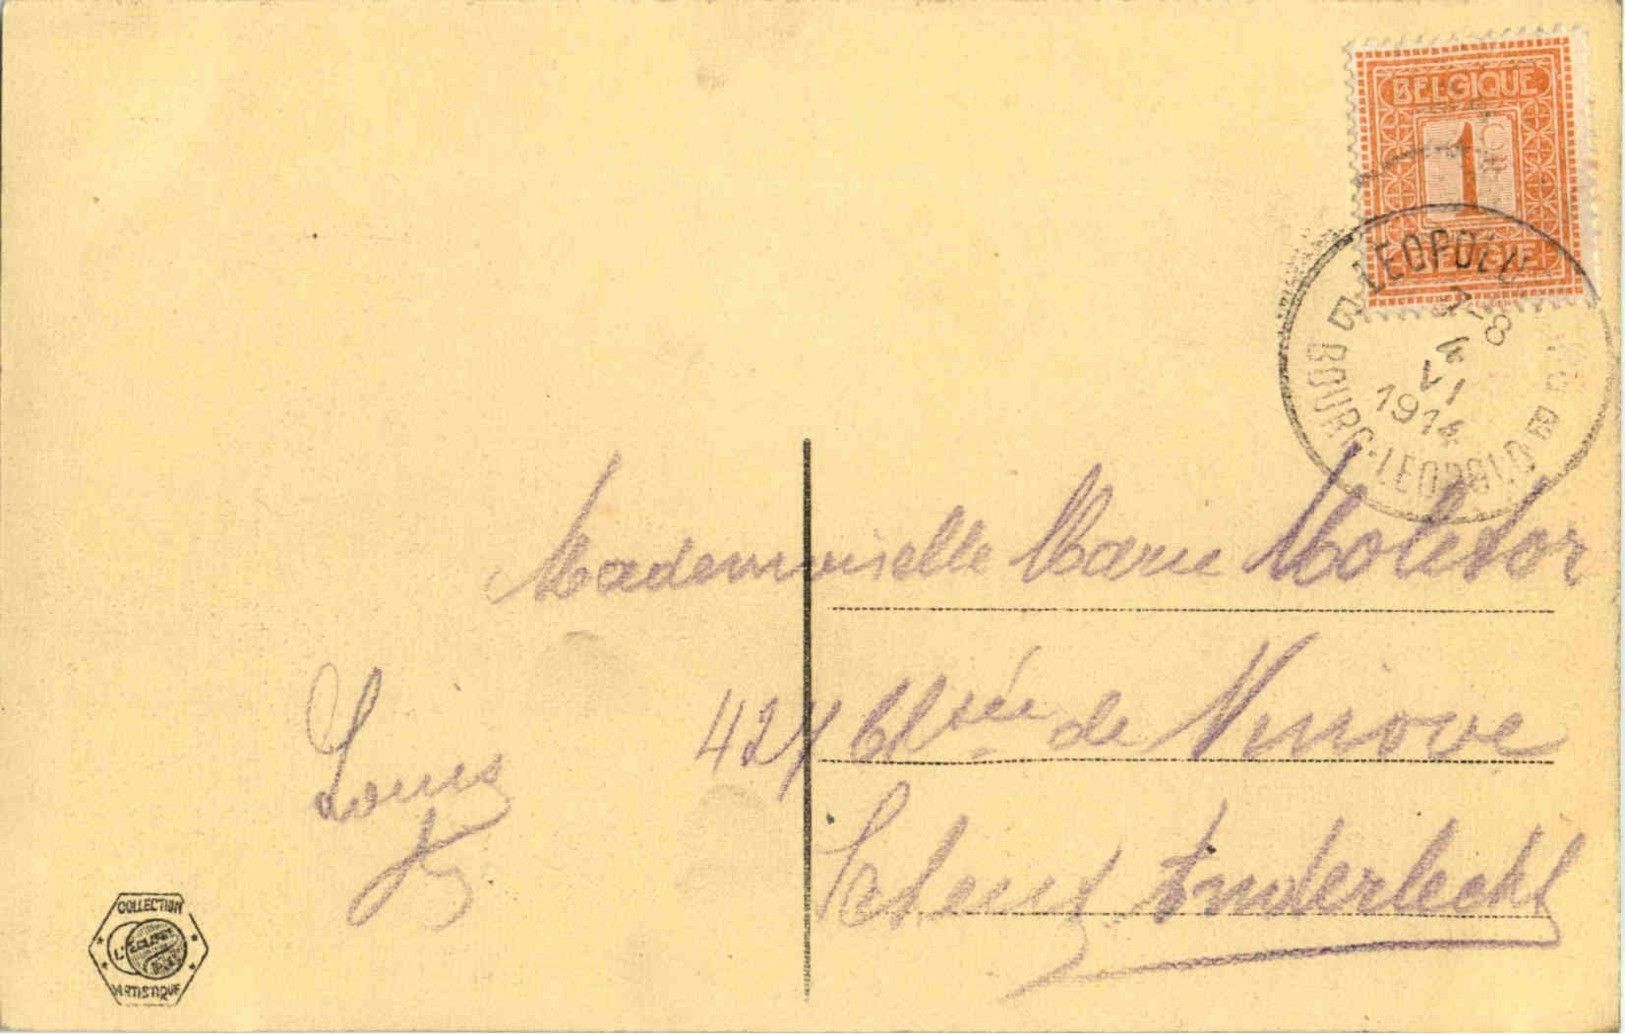 BELGIQUE
1
LEOPOLD
7-8
4
VI
1914
BOURG-LEOPOLD
Mademoiselle Marie Molitor
427 Chsée de Ninove
Scheut Anderlecht
Louis
COLLECTION
L'ECLIPSE
ARTISTIQUE